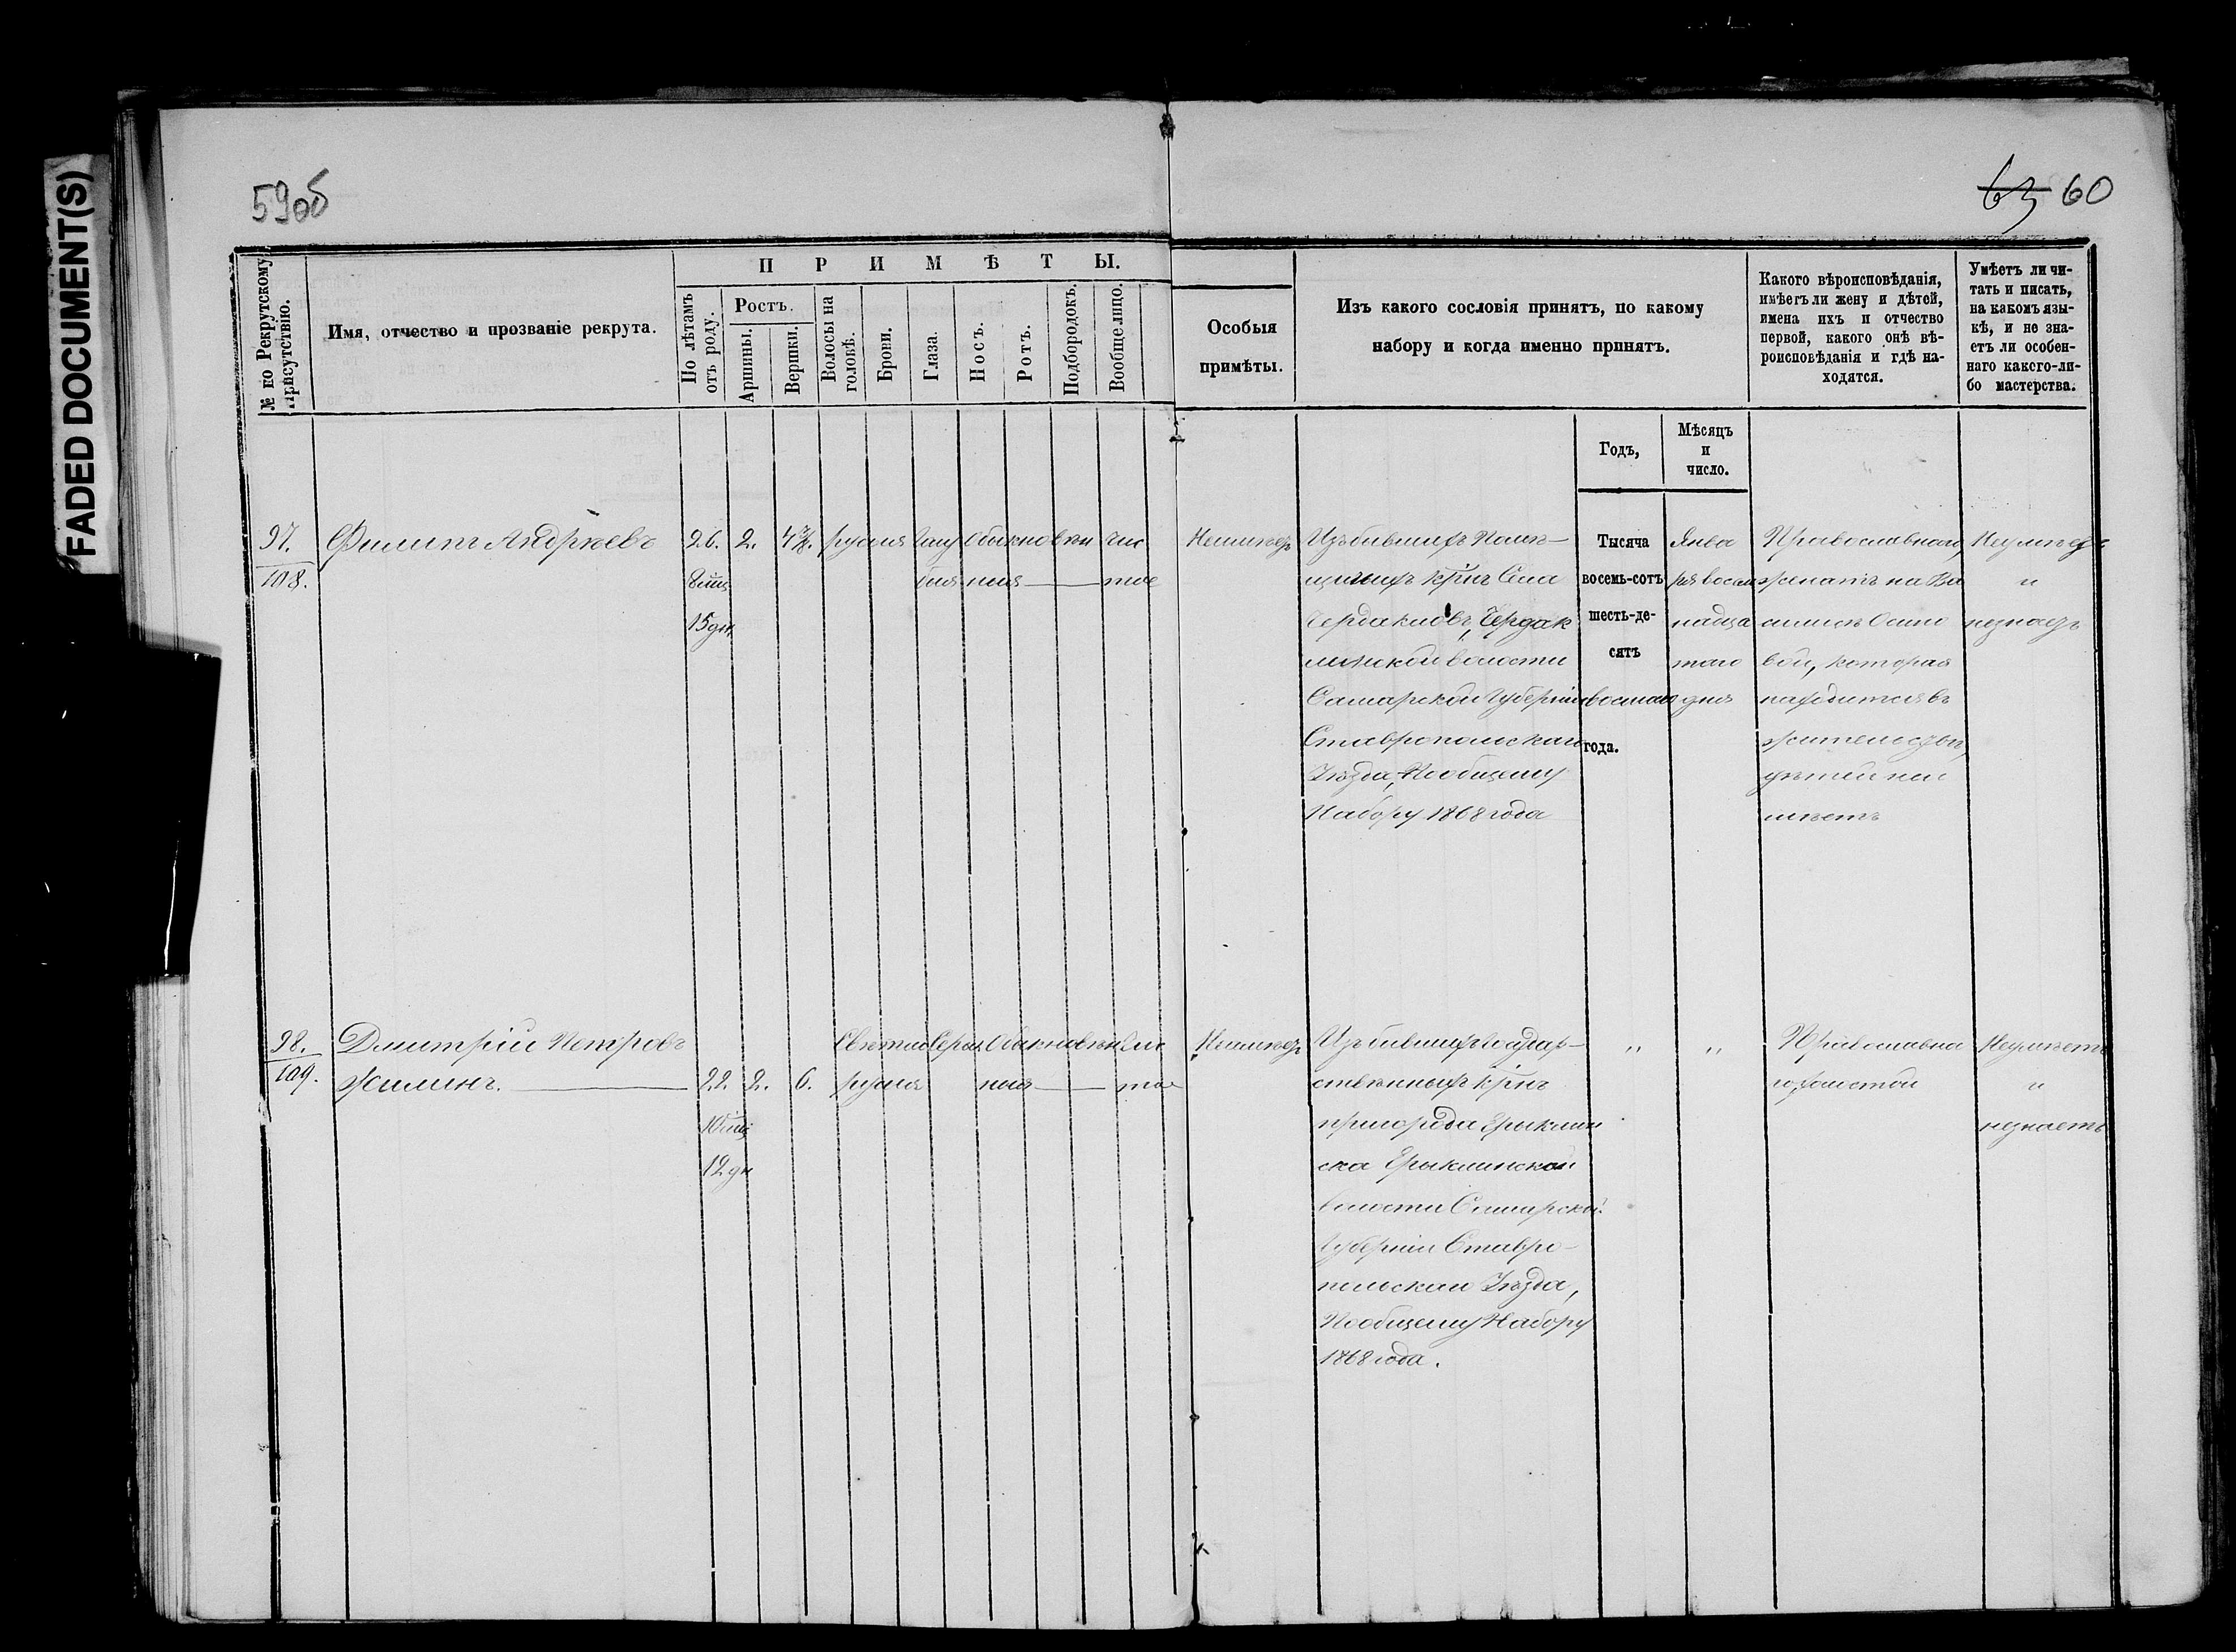 FADED DOCUMENT(S)
59об
63 60
№ по Рекрутскому присутствію.
Имя, отчество и прозваніе рекрута.
ПРИМѢТЫ.
По лѣтамъ отъ роду.
Ростъ.
Аршины.
Вершки.
Волосы на головѣ.
Брови.
Глаза.
Носъ.
Ротъ.
Подбородокъ.
Вообще лицо.
Особыя
примѣты.
Изъ какого сословія принятъ, по какому
набору и когда именно принятъ.
Годъ,
Мѣсяцъ
и
число.
Какого вѣроисповѣданія,
имѣетъ ли жену и дѣтей,
имена ихъ и отчество
первой, какого онѣ вѣ-
роисповѣданія и гдѣ на-
ходятся.
Умѣетъ ли чи-
тать и писать,
на какомъ язы-
кѣ, и не зна-
етъ ли особен-
наго какого-ли-
бо мастерства.
97.
108.
Филипъ Андрѣевъ
26.
8 мц
15 дн.
2.
4 7/8.
русыя
голу
быя
обыкновен
ныя
чис
тое
Неимѣетъ
Изъ бывшихъ Помѣ-
щичьихъ Крнъ Села
Чердаковъ, Чердак
линской волости
Самарской Губерніи
Ставропольскаго
Уѣзда, Пообщему
Набору 1868 года
Тысяча
восемь-сотъ
шесть-де-
сятъ
восьмаго
года.
Янва
ря восем
надца
таго
дня
Православнаго
женатъ на Ва
силисѣ Осипо
вой, которая
находится въ
жительствѣ,
дѣтей неи
мѣетъ
Неумѣетъ
и
незнаетъ
98.
109.
Дмитрій Петровъ
Жилинъ.
22.
10 мц
12 дн
2.
6.
Свѣтло
русыя
Серыя
Обыкновен
ныя
Чис
тое
Неимѣетъ
Изъ бывшихъ Государ-
ственныхъ Крнъ
пригорода Ерыклин
ска Ерыклинской
волости Самарской
Губерніи Ставро-
польскаго Уѣзда,
Пообщему Набору
1868 года.
"
"
Православна
го, холостой
Неумѣетъ
и
незнаетъ